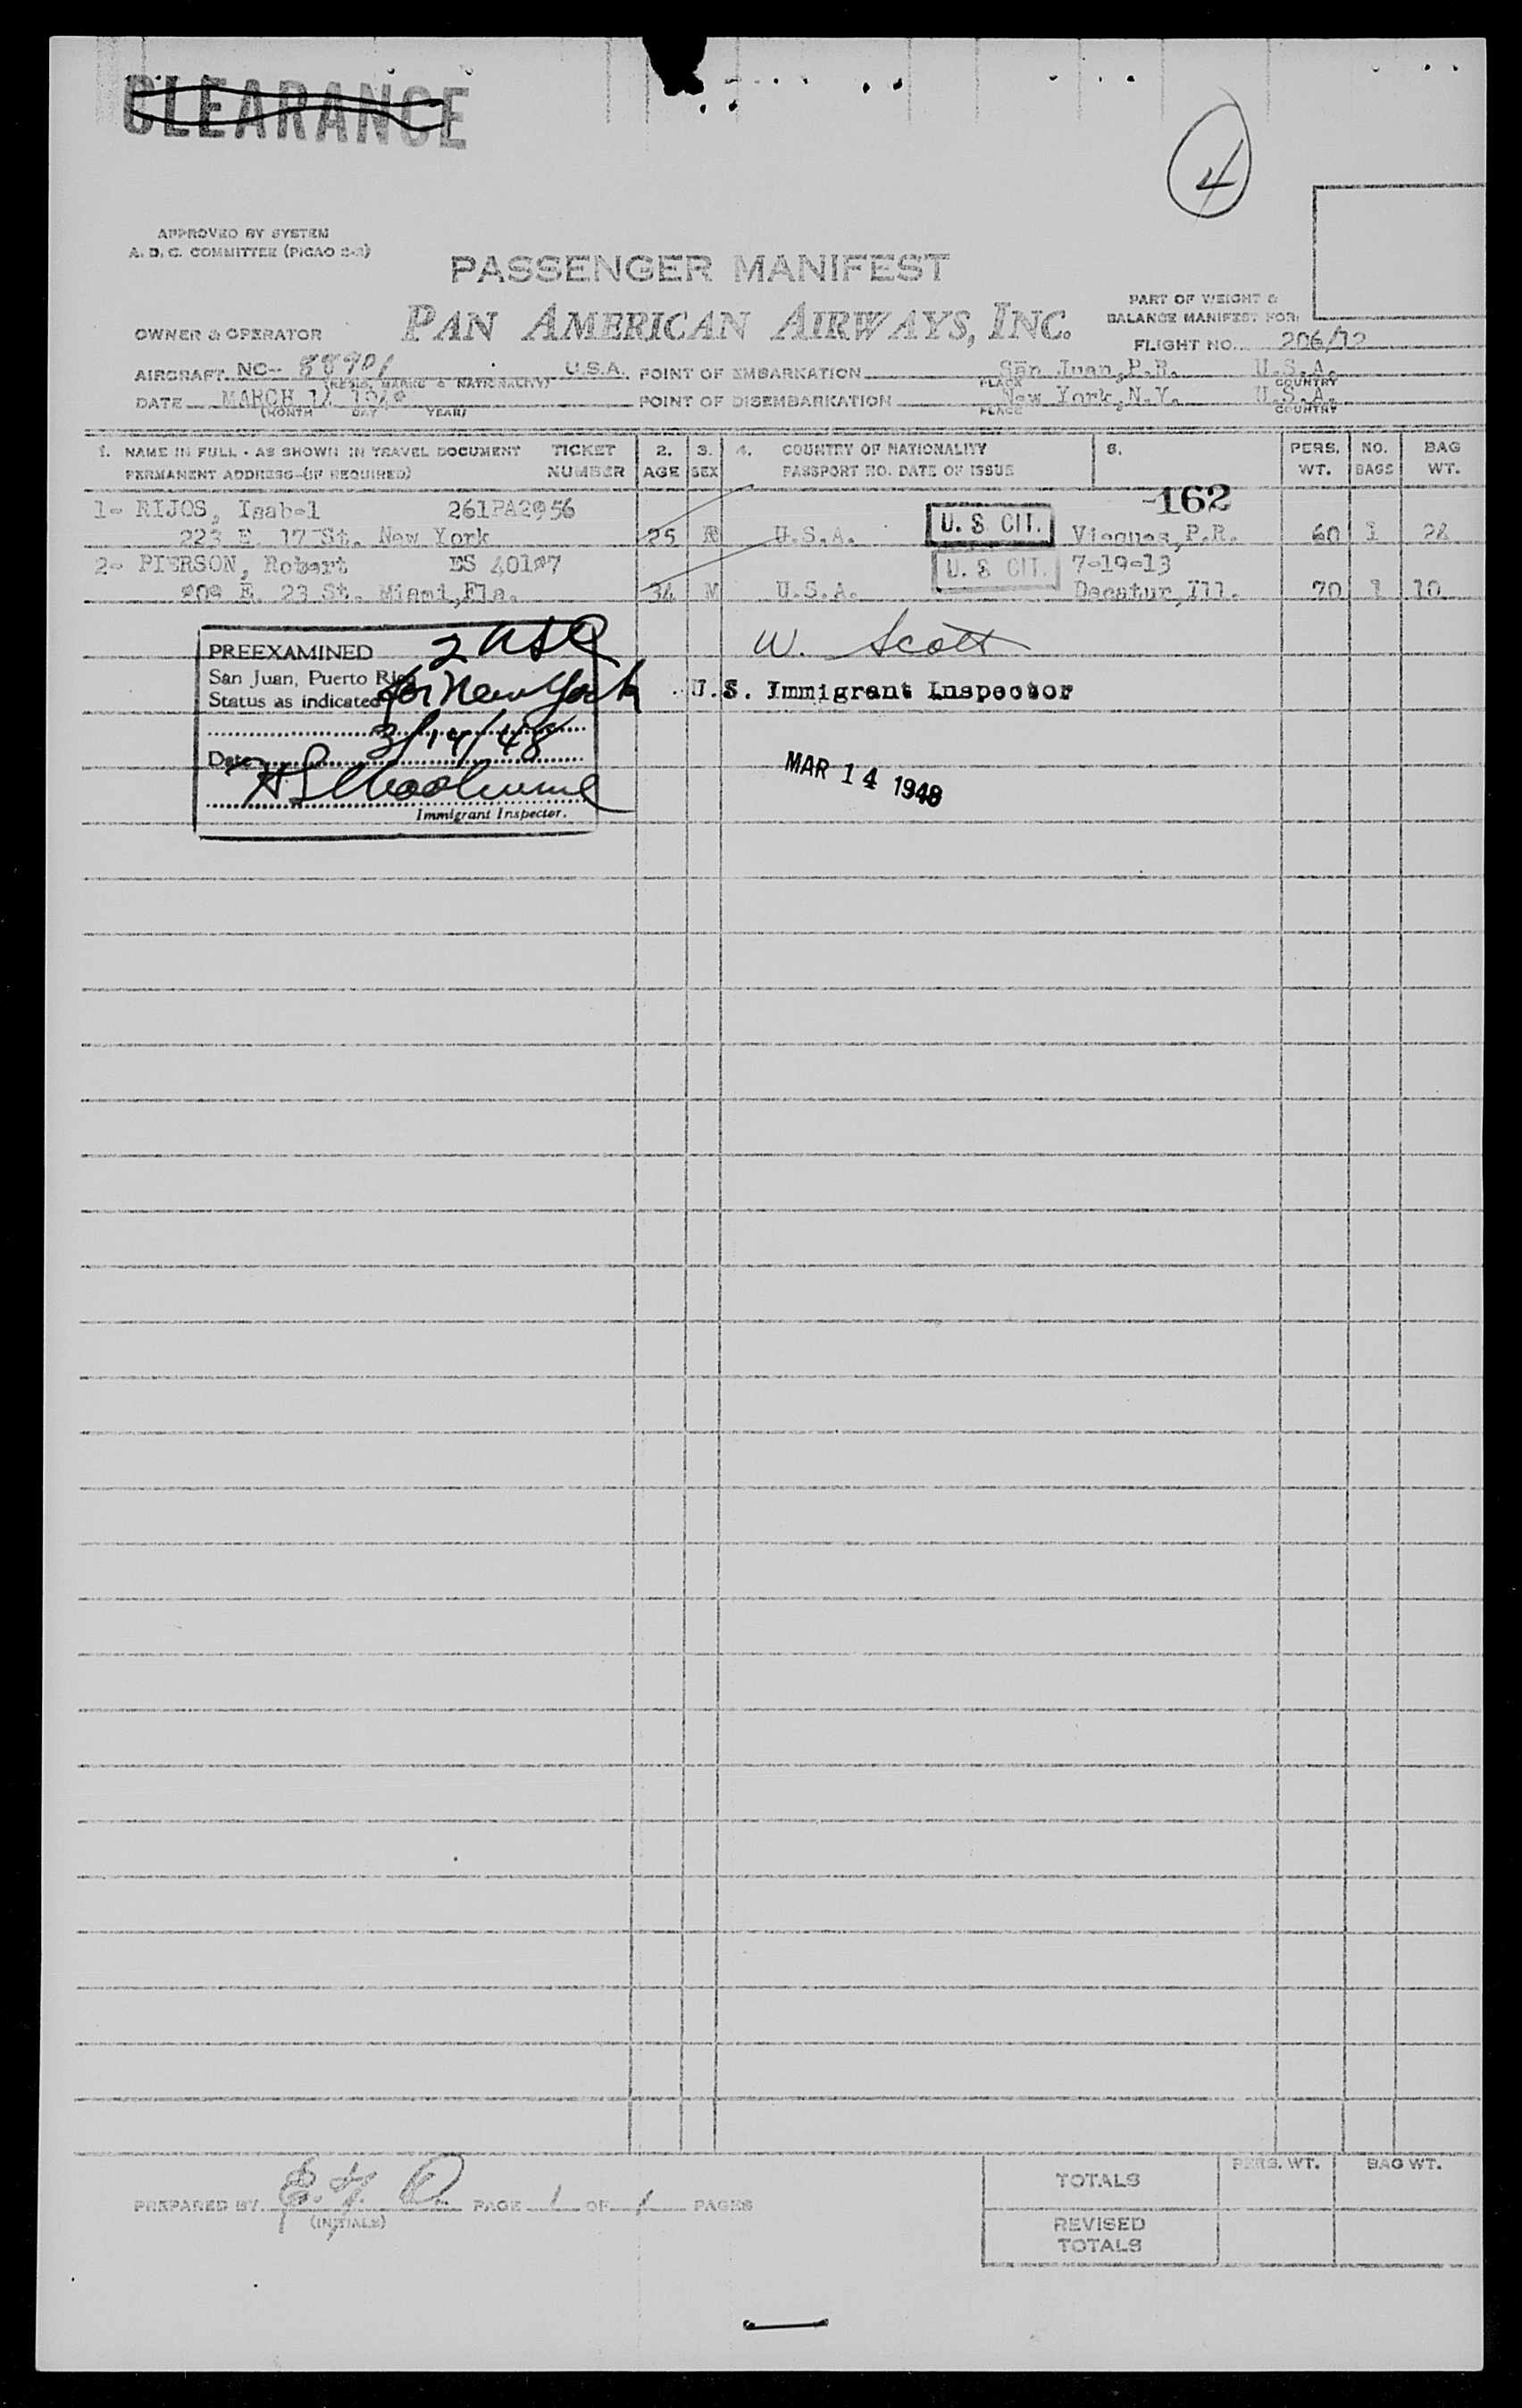 CLEARANCE
4
APPROVED BY SYSTEM
A. D. C. COMMITTEE (PICAO 2-3)
PASSENGER MANIFEST
PAN AMERICAN AIRWAYS, INC.
PART OF WEIGHT &
BALANCE MANIFEST FOR:
OWNER & OPERATOR
FLIGHT NO. 206/12
AIRCRAFT NC-- 88901 U.S.A. POINT OF EMBARKATION San Juan,P.R. U.S.A.
(REGIS. MARKS & NATIONALITY) PLACE COUNTRY
DATE MARCH 14 1948 POINT OF DISEMBARKATION New York,N.Y. U.S.A.
(MONTH DAY YEAR) PLACE COUNTRY
1. NAME IN FULL - AS SHOWN IN TRAVEL DOCUMENT TICKET 2. 3. 4. COUNTRY OF NATIONALITY 5. PERS. NO. BAG
PERMANENT ADDRESS-(IF REQUIRED) NUMBER AGE SEX PASSPORT NO. DATE OF ISSUE WT. BAGS WT.
1- RIJOS, Isabel 261PA2956 -162
223 E. 17 St. New York 25 U.S.A. U. S CIT. Vieques,P.R. 60 1 24
2- PIERSON, Robert ES 40197 U. S CIT. 7-19-13
209 E. 23 St. Miami,Fla. 34 M U.S.A. Decatur,Ill. 70 1 10
PREEXAMINED 2 USC W. Scott
San Juan, Puerto Rico for New York U.S. Immigrant Inspector
Status as indicated
3/14/48
Date
MAR 14 1948
Immigrant Inspector.
PREPARED BY PAGE 1 OF 1 PAGES
(INITIALS)
PERS. WT. BAG WT.
TOTALS
REVISED
TOTALS